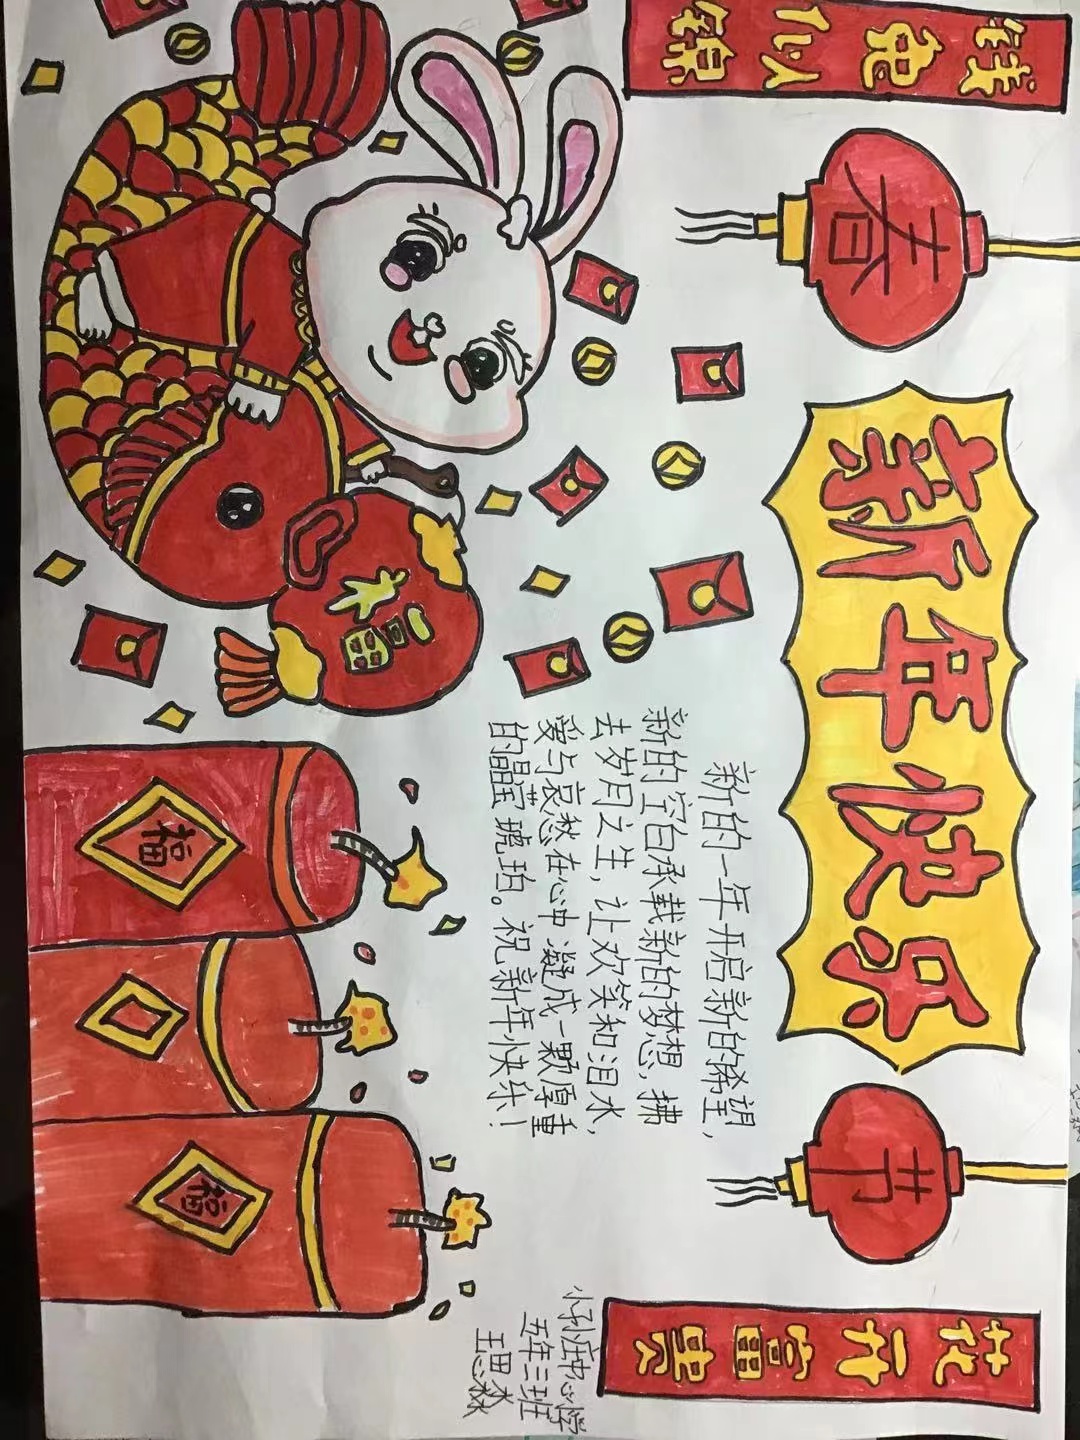 钱兔似锦
春
新年快乐
节
花开富贵
新的一年开启新的希望,
新的空白承载新的梦想,拂
去岁月之生,让欢笑和泪水,
爱与哀愁在心中凝成一颗厚重
的晶莹琥珀。祝新年快乐!
福
福
福
五年三班
王思淼